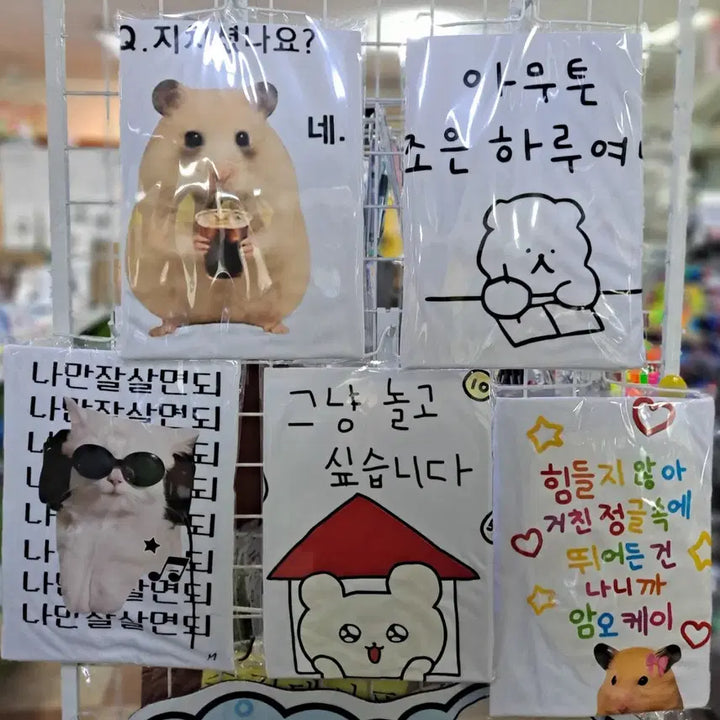 Q.지치셨나요?
네.
아무튼
조은 하루여
나만잘살면되
나만잘살면되
되
되
되
나 되
나 살면되
나만잘살면되
그냥 놀고
싶습니다
10
힘들지 않아
거친 정글속에
뛰어든 건
나니까
암오케이